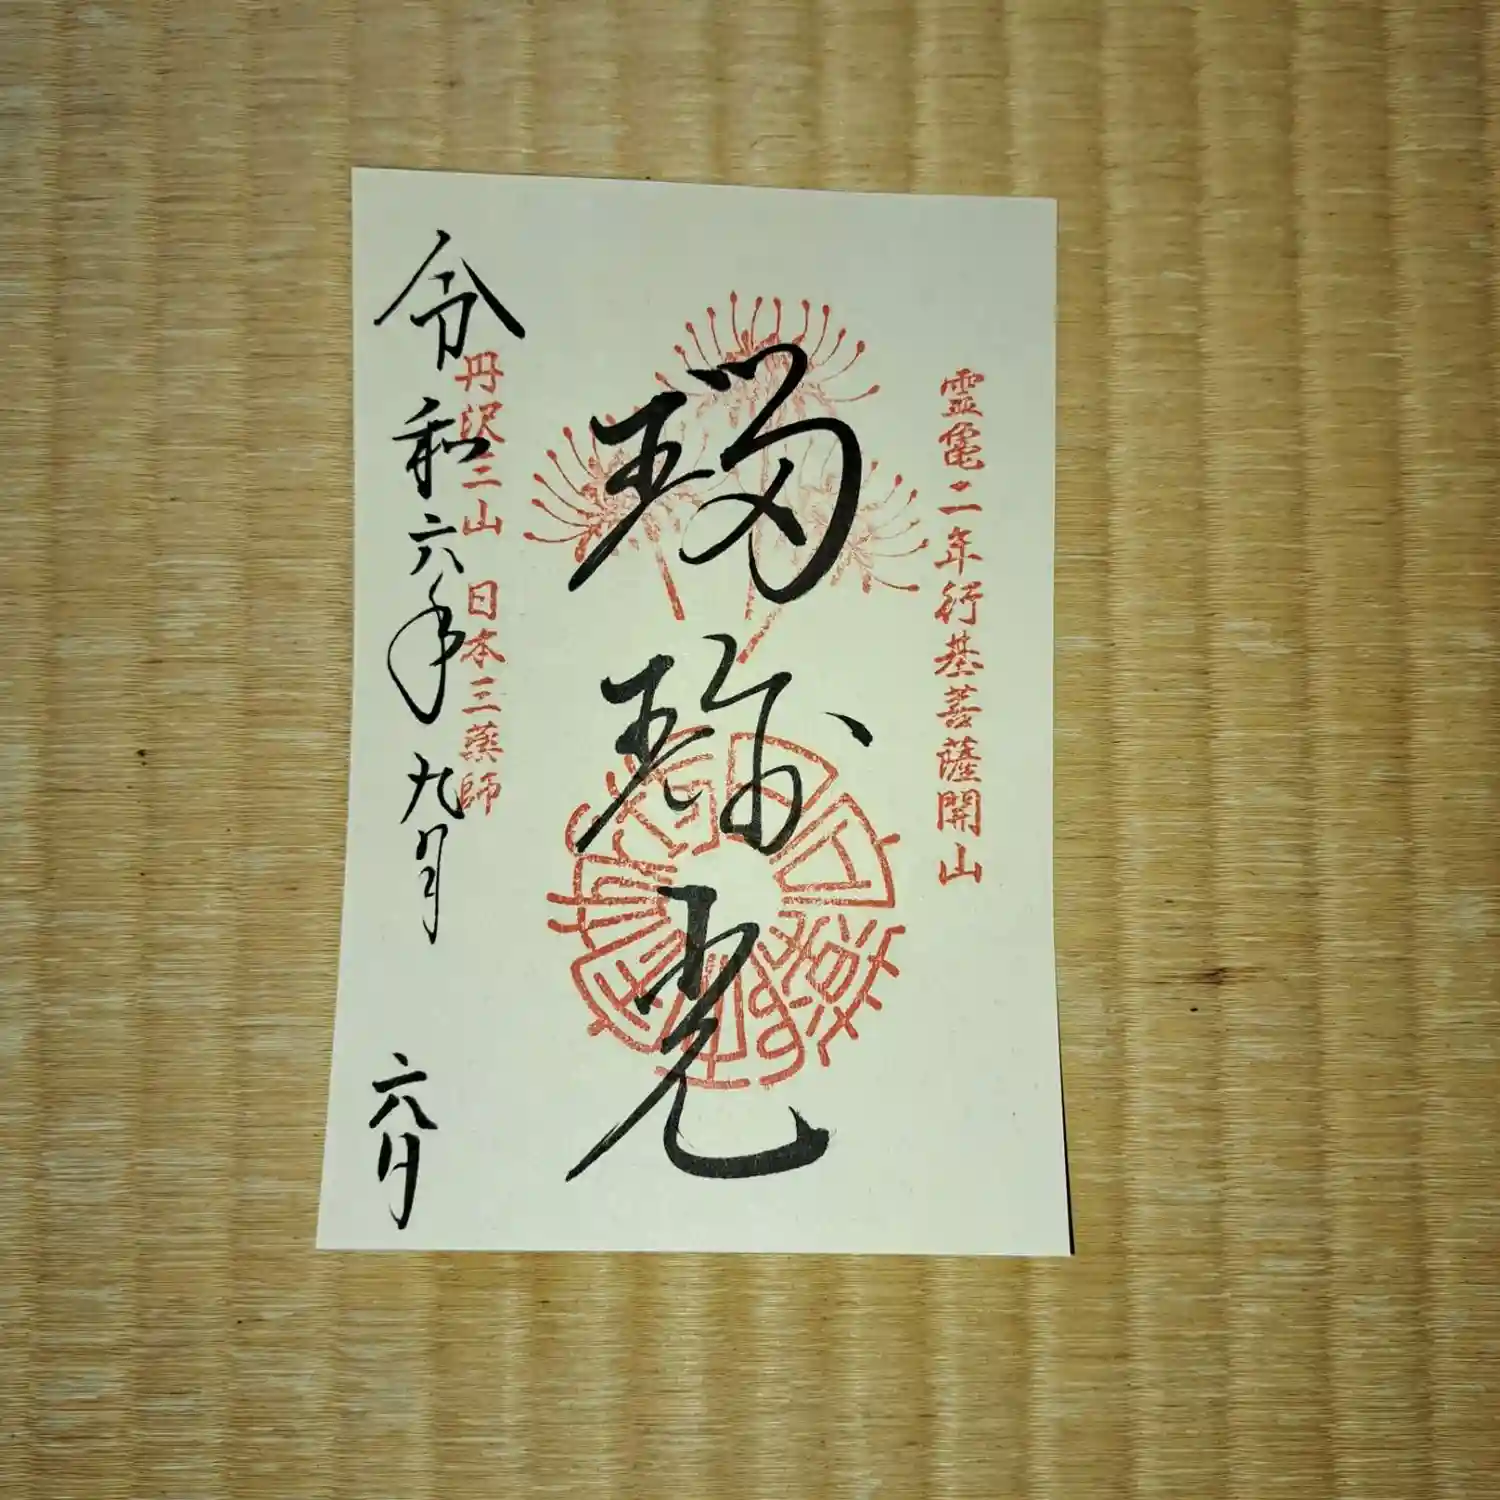 霊亀二年行基菩薩開山
瑠璃光
丹沢三山 日本三薬師
令和六年九月 六日